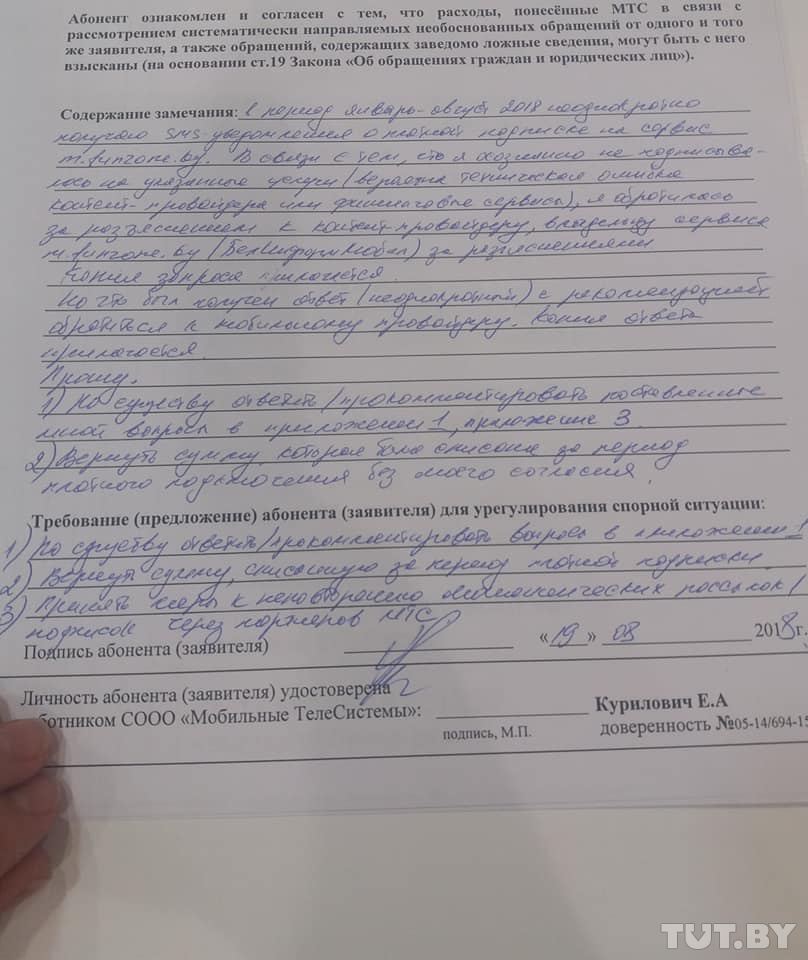 Абонент ознакомлен и согласен с тем, что расходы, понесённые МТС в связи с
рассмотрением систематически направляемых необоснованных обращений от одного и того
же заявителя, а также обращений, содержащих заведомо ложные сведения, могут быть с него
взысканы (на основании ст.19 Закона «Об обращениях граждан и юридических лиц»).
Содержание замечания: в период январь-август 2018 неоднократно
получаю SMS-уведомления о платной подписке на сервис
m.funzone.by. В связи с тем, что я не подписыва-
лась на указанные услуги (вероятна техническая ошибка
контент-провайдера или фишинговые сервисы), я обратилась
за разъяснением к контент-провайдеру, владельцу сервиса
m.funzone.by (БелИнформМобал) за разъяснениями
Копия запроса прилагается.
На что был получен ответ (неоднократный) с рекомендацией
обратиться к мобильному провайдеру. Копия ответа
прилагается.
Прошу.
1) По существу ответить/прокомментировать поставленные
мной вопросы в приложении 1, приложение 3.
2) Вернуть сумму, которая была списана за период
платного подключения без моего согласия.
Требование (предложение) абонента (заявителя) для урегулирования спорной ситуации:
1) По существу ответить/прокомментировать вопросы в приложении 1
2) Вернуть сумму, списанную за период платной подписки.
3) Принять меры к рассылок/
подписок через партнеров МТС
Подпись абонента (заявителя) «19» 08 2018г.
Личность абонента (заявителя) удостоверена
работником СООО «Мобильные ТелеСистемы»: Курилович Е.А
подпись, М.П. доверенность №05-14/694-15
TUT.BY